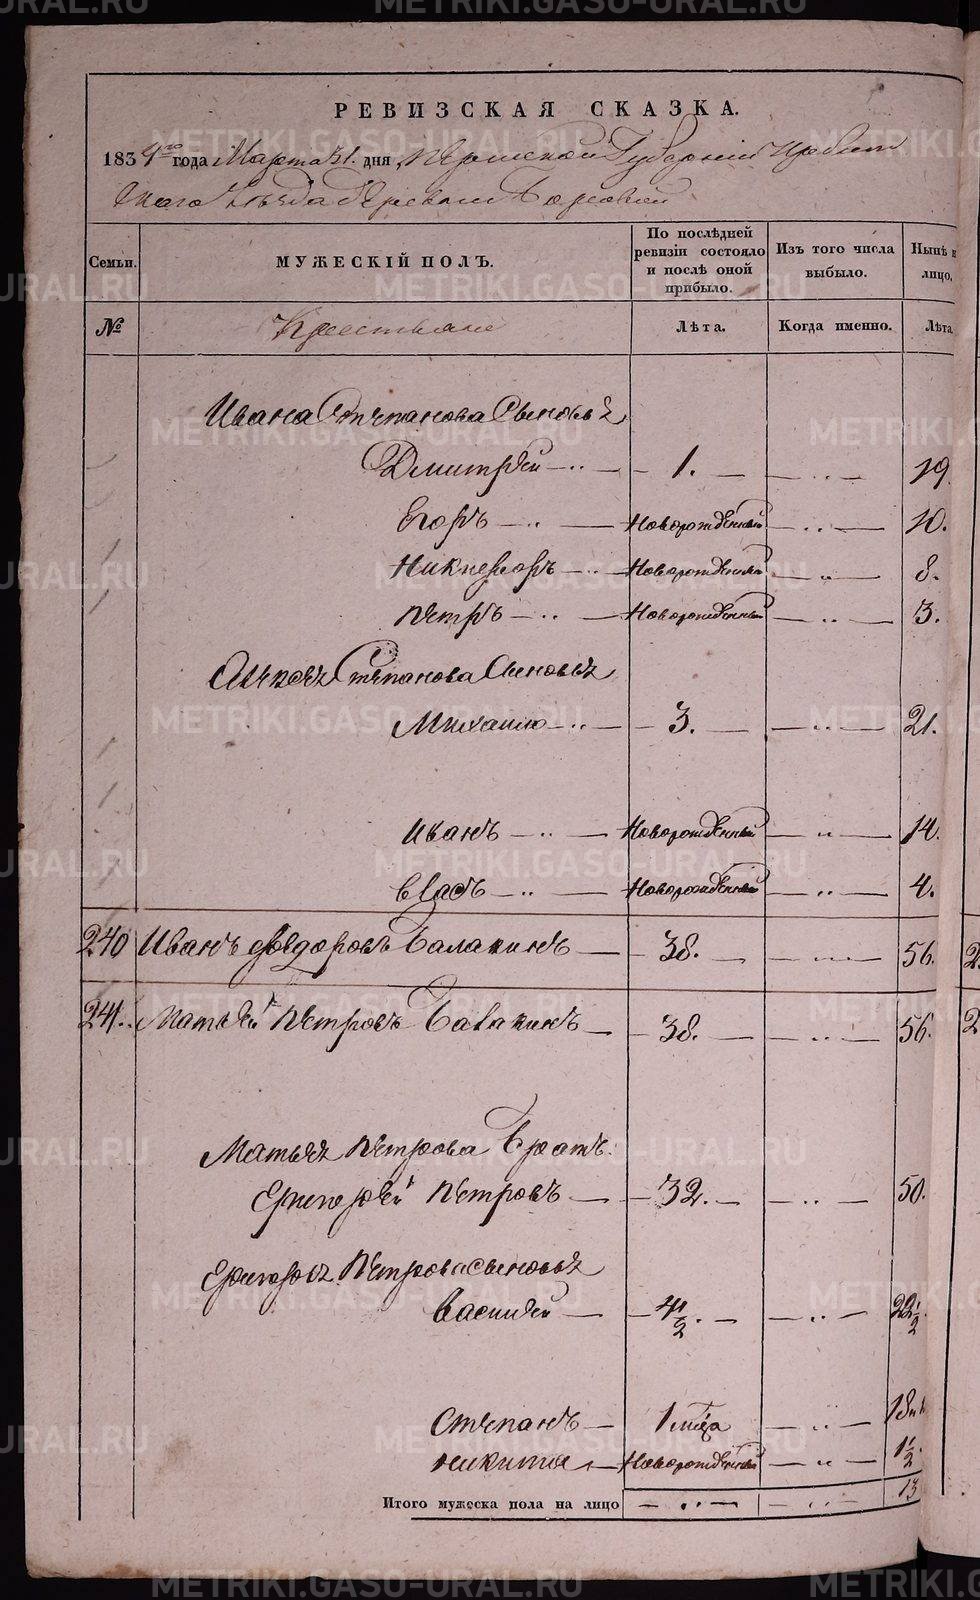 РЕВИЗСКАЯ СКАЗКА.
1834го года Марта 31. дня, Пермской Губернiи Ирбит
скаго Уѣзда деревни Боровой
Семьи. МУЖЕСКIЙ ПОЛЪ. По послѣдней ревизiи состояло и послѣ оной прибыло. Изъ того числа выбыло. Нынѣ н лицо,
№ Крестьяне Лѣта. Когда именно. Лѣта
Ивана Степанова Сыновья
Дмитрiй — 1. — 19.
Егоръ — Новорожденный — 10.
Никифоръ — Новорожденный — 8.
Петръ — Новорожденный — 3.
Степанова Сыновья
Михайло — 3. — 21.
Иванъ — Новорожденный — 14.
Власъ — Новорожденный — 4.
240 Иванъ Федоровъ Балакинъ — 38. — 56.
241. Матвѣй Петровъ Балакинъ — 38. — 56.
Матвѣя Петрова Братъ.
Григорiй Петровъ — 32. — 50.
Григорья Петрова сыновья
Василiй — 4 1/2. — 22 1/2
Степанъ — 1 мѣс. — 18
Никита — Новорожденный — 1 1/2.
Итого мужеска пола на лицо — 13
METRIKI.GASO-URAL.RU